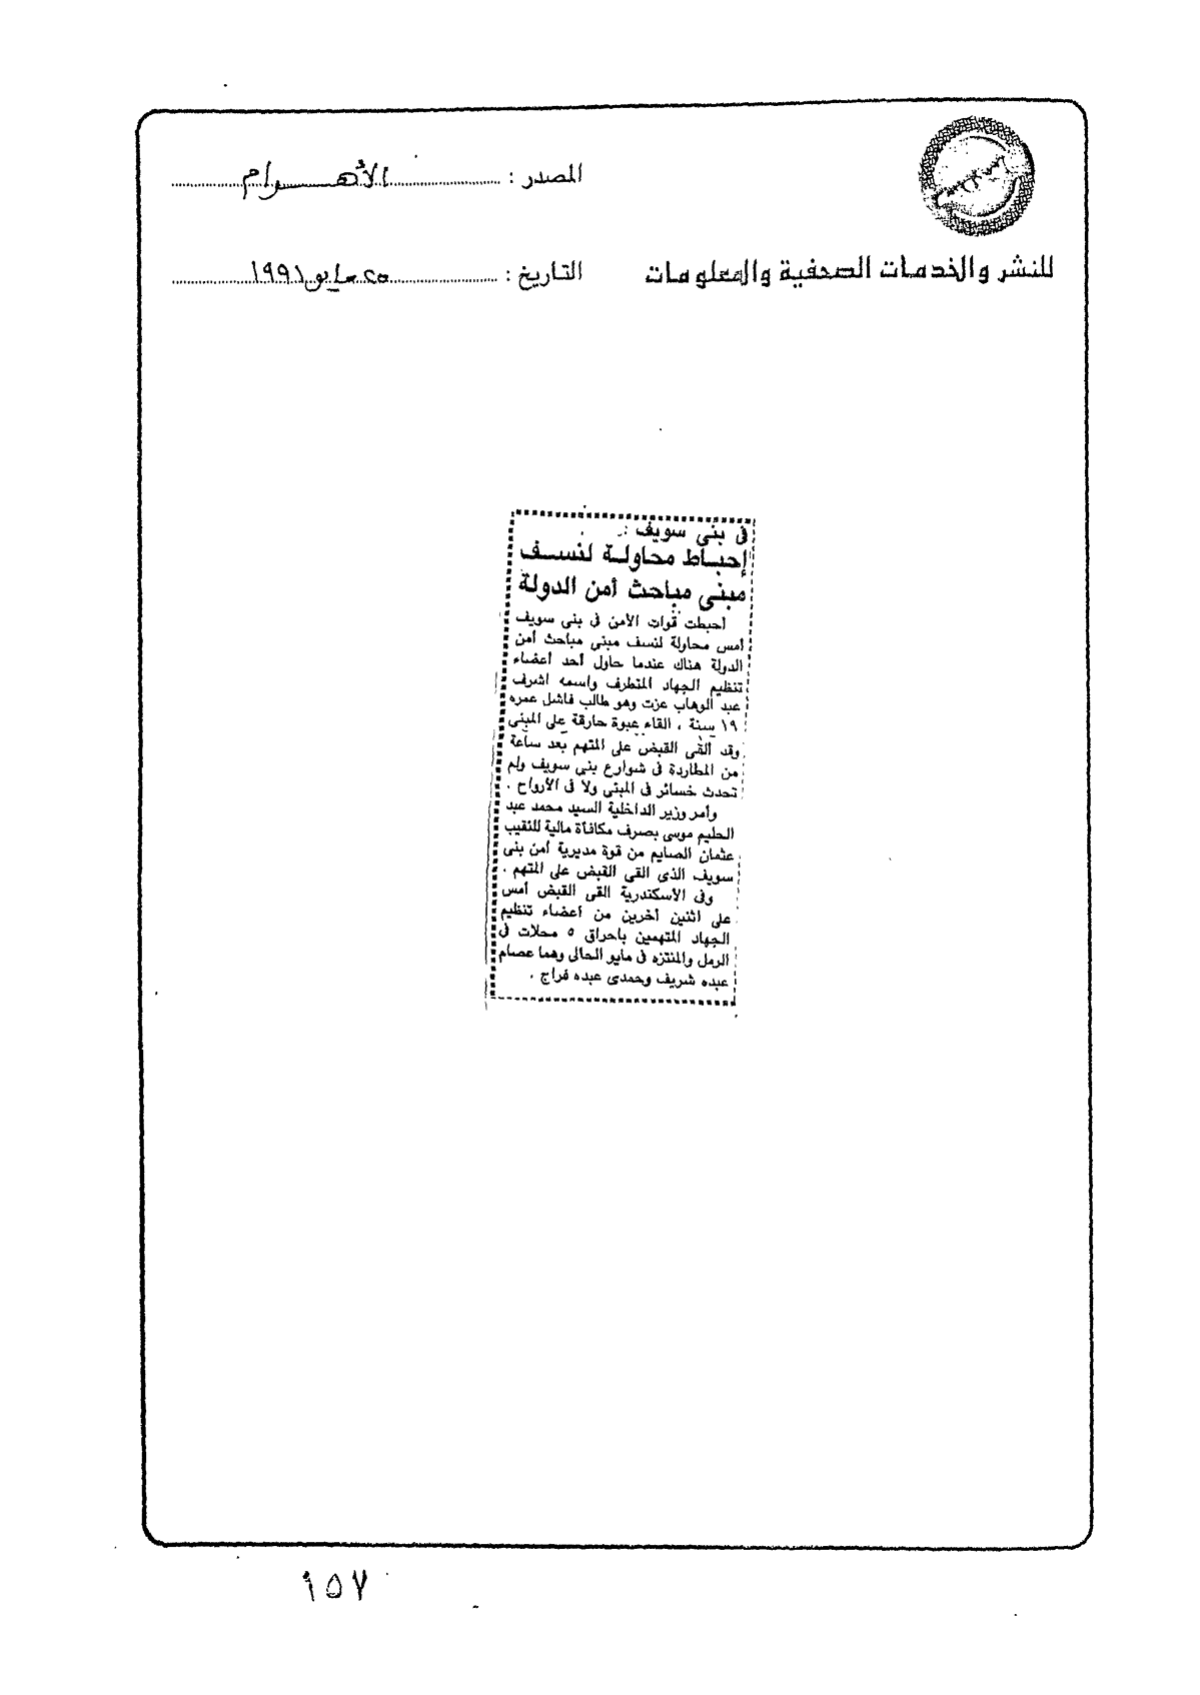 المصدر : الأهــرام
للنشر والخدمات الصحفية والمعلومات
التاريخ : ٢٥ مايو ١٩٩١
فى بنى سويف :
إحبــاط محاولــة لنســف
مبنى مباحث أمن الدولة
أحبطت قوات الأمن فى بنى سويف
أمس محاولة لنسف مبنى مباحث أمن
الدولة هناك عندما حاول أحد أعضاء
تنظيم الجهاد المتطرف واسمه اشرف
عبد الوهاب عزت وهو طالب فاشل عمره
١٩ سنة ، القاء عبوة حارقة على المبنى
وقد القى القبض على المتهم بعد ساعة
من المطاردة فى شوارع بنى سويف ولم
تحدث خسائر فى المبنى ولا فى الأرواح .
وأمر وزير الداخلية السيد محمد عبد
الحليم موسى بصرف مكافأة مالية للنقيب
عثمان الصايم من قوة مديرية أمن بنى
سويف الذى القى القبض على المتهم .
وفى الأسكندرية القى القبض أمس
على اثنين أخرين من أعضاء تنظيم
الجهاد المتهمين باحراق ٥ محلات فى
الرمل والمنتزه فى مايو الحالى وهما عصام
عبده شريف وحمدى عبده فراج .
١٥٧